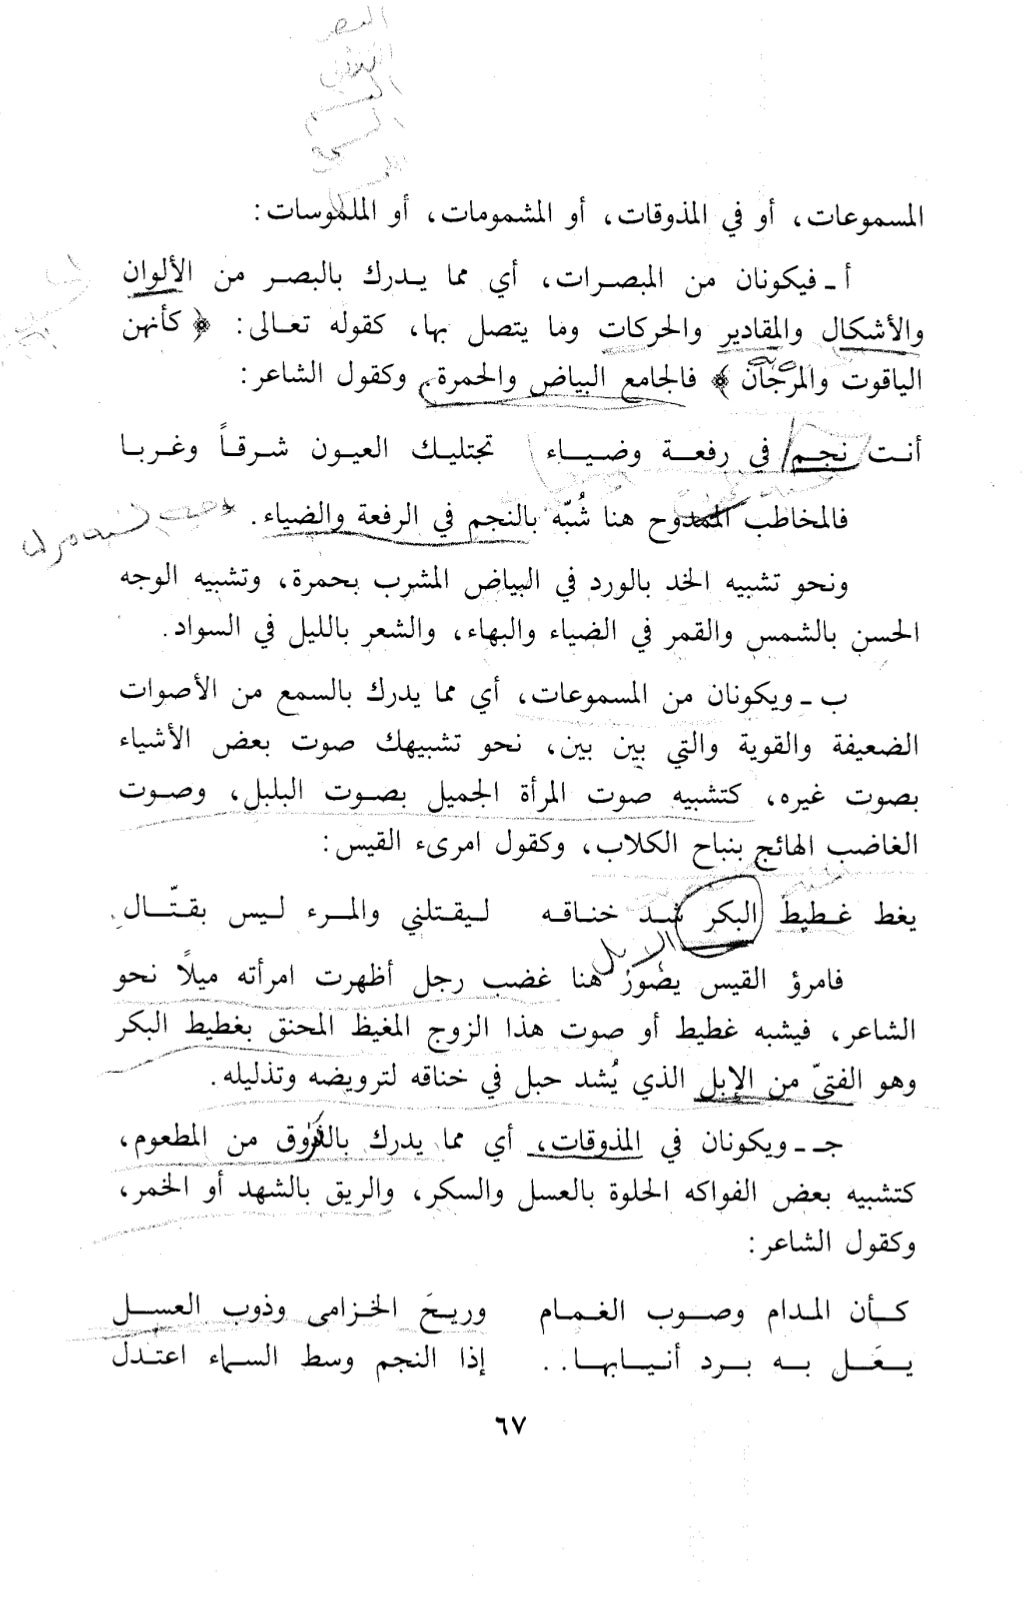 المسموعات، أو في المذوقات، أو المشمومات، أو الملموسات:
أ ـ فيكونان من المبصرات، أي مما يدرك بالبصر من الألوان
والأشكال والمقادير والحركات وما يتصل بها، كقوله تعالى: ﴿ كأنهن
الياقوت والمرجان ﴾ فالجامع البياض والحمرة. وكقول الشاعر:
أنت نجم في رفعة وضياء تجتليك العيون شرقاً وغربا
فالمخاطب الممدوح هنا شُبّه بالنجم في الرفعة والضياء.
ونحو تشبيه الخد بالورد في البياض المشرب بحمرة، وتشبيه الوجه
الحسن بالشمس والقمر في الضياء والبهاء، والشعر بالليل في السواد.
ب ـ ويكونان من المسموعات، أي مما يدرك بالسمع من الأصوات
الضعيفة والقوية والتي بين بين، نحو تشبيهك صوت بعض الأشياء
بصوت غيره، كتشبيه صوت المرأة الجميل بصوت البلبل، وصوت
الغاضب الهائج بنباح الكلاب، وكقول امرىء القيس:
يغط غطيطَ البكر شد خناقه ليقتلني والمرء ليس بقتّالِ
الإبل
فامرؤ القيس يصور هنا غضب رجل أظهرت امرأته ميلًا نحو
الشاعر، فيشبه غطيط أو صوت هذا الزوج المغيظ المحنق بغطيط البكر
وهو الفتيّ من الإبل الذي يُشد حبل في خناقه لترويضه وتذليله.
جـ ـ ويكونان في المذوقات، أي مما يدرك بالذوق من المطعوم،
كتشبيه بعض الفواكه الحلوة بالعسل والسكر، والريق بالشهد أو الخمر،
وكقول الشاعر:
كأن المدام وصوب الغمام وريحَ الخزامى وذوب العسل
يعَل به برد أنيابها.. إذا النجم وسط السماء اعتدل
٦٧